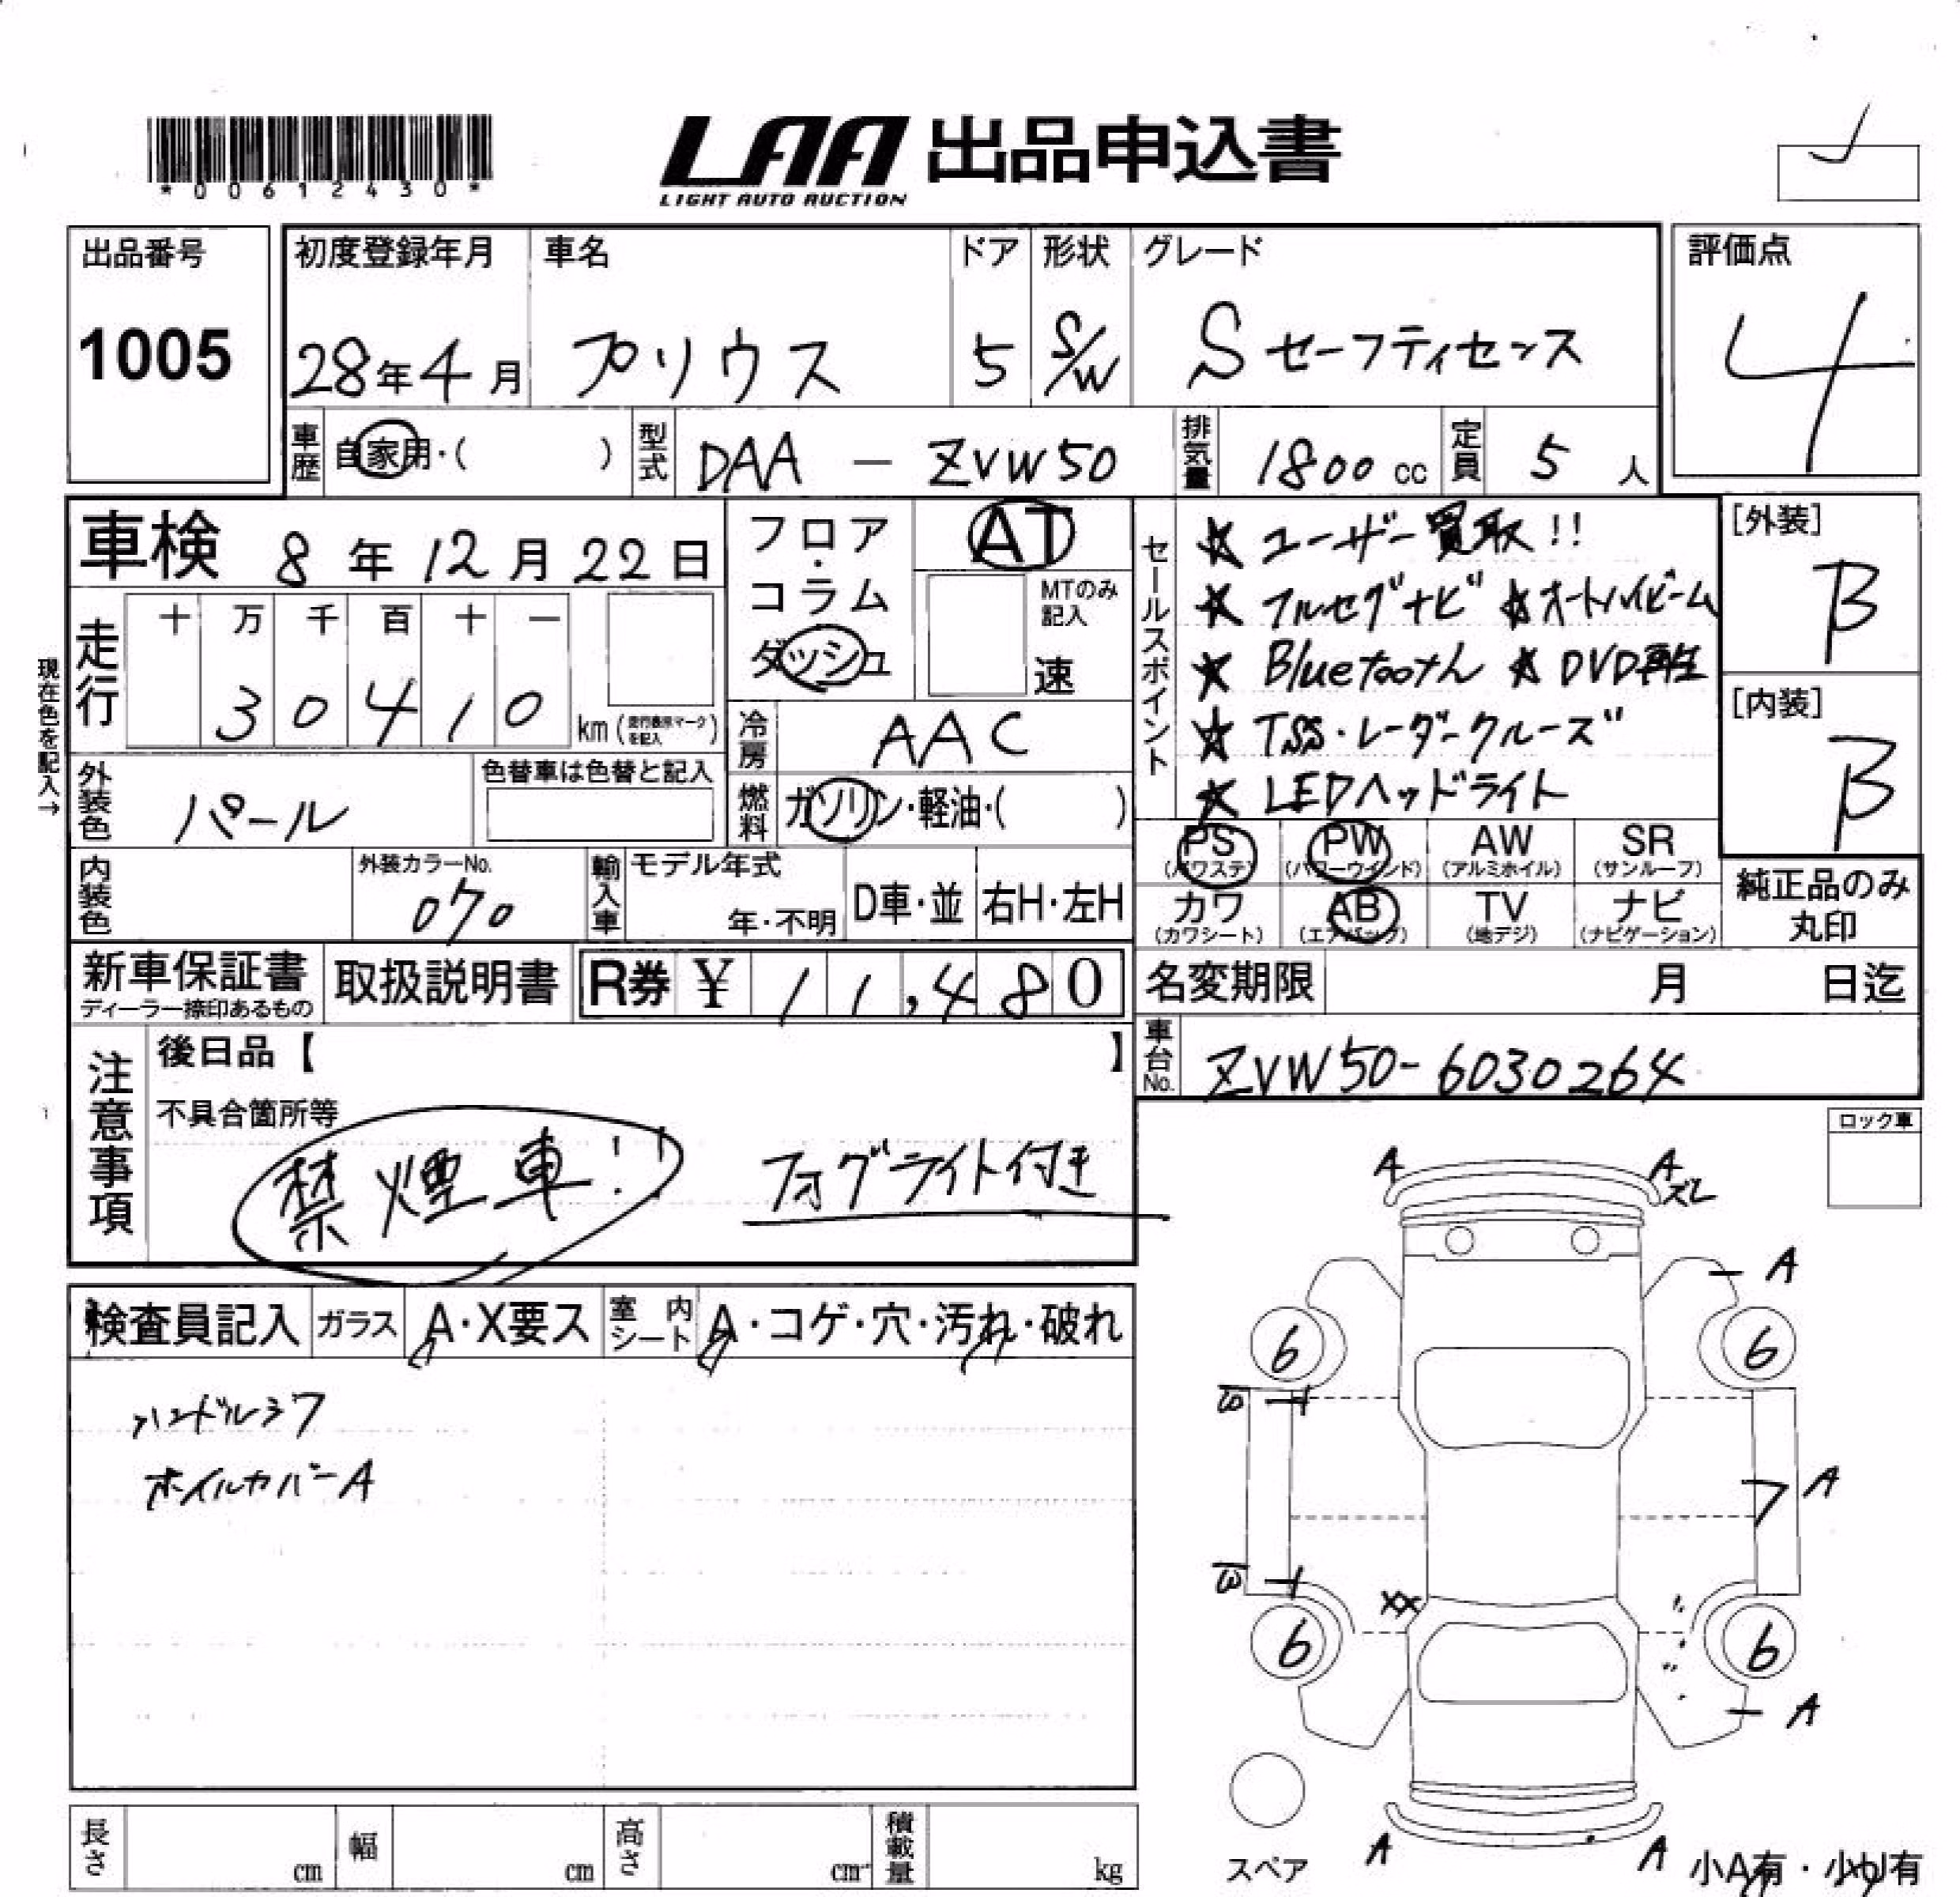 *00612430*
LAA 出品申込書
LIGHT AUTO AUCTION
出品番号
1005
初度登録年月
28年4月
車名
プリウス
ドア
5
形状
S/W
グレード
Sセーフティセンス
評価点
4
車歴
自家用・( )
型式
DAA - ZVW50
排気量
1800 cc
定員
5 人
車検 8年12月22日
フロア・コラム
ダッシュ
AT
MTのみ記入
速
セールスポイント
☆ユーザー買取!!
☆フルセグナビ ☆オートハイビーム
☆Bluetooth ☆DVD再生
☆TSS・レーダークルーズ
☆LEDヘッドライト
[外装]
B
[内装]
B
現在色を記入→
走行
十 万 千 百 十 一
3 0 4 1 0
km(走行表示マークを記入)
冷房
AAC
外装色
パール
色替車は色替と記入
燃料
ガソリン・軽油・( )
PS
(パワステ)
PW
(パワーウインド)
AW
(アルミホイル)
SR
(サンルーフ)
カワ
(カワシート)
AB
(エアバック)
TV
(地デジ)
ナビ
(ナビゲーション)
純正品のみ丸印
内装色
外装カラーNo.
070
輸入車
モデル年式
年・不明
D車・並
右H・左H
新車保証書
ディーラー捺印あるもの
取扱説明書
R券 ¥11,480
名変期限 月 日迄
車台No.
ZVW50-6030264
注意事項
後日品【 】
不具合箇所等
禁煙車!!
フォグライト付き
ロック車
検査員記入
ガラス
A・X要ス
室内シート
A・コゲ・穴・汚れ・破れ
ハンドルシワ
ホイルカバーA
A
A
ズレ
A
6
6
A
XX
6
6
A
A
A
スペア
小A有・小U有
長さ cm
幅 cm
高さ cm
積載量 kg